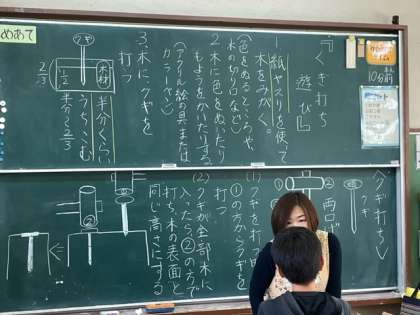 めあて
『くぎ打ち遊び』
1. 紙ヤスリを使って
木をみがく。
(色をぬるところや、
木の切り口など)
2. 木に色をぬったり
もようをかいたりする。
(アクリル絵の具または
カラーペン)
3. 木に、クギを
打つ
クギ
木材
1/2
2/3
半分くらい
うちこむ
半分〜2/3
〈クギ打ち〉
クギ
両口
①
②
(1) クギを打つ
①の方からクギを
打つ
(2) クギが全部木に
入ったら②の方で
打ち、木の表面と
同じ高さにする
②
10分前